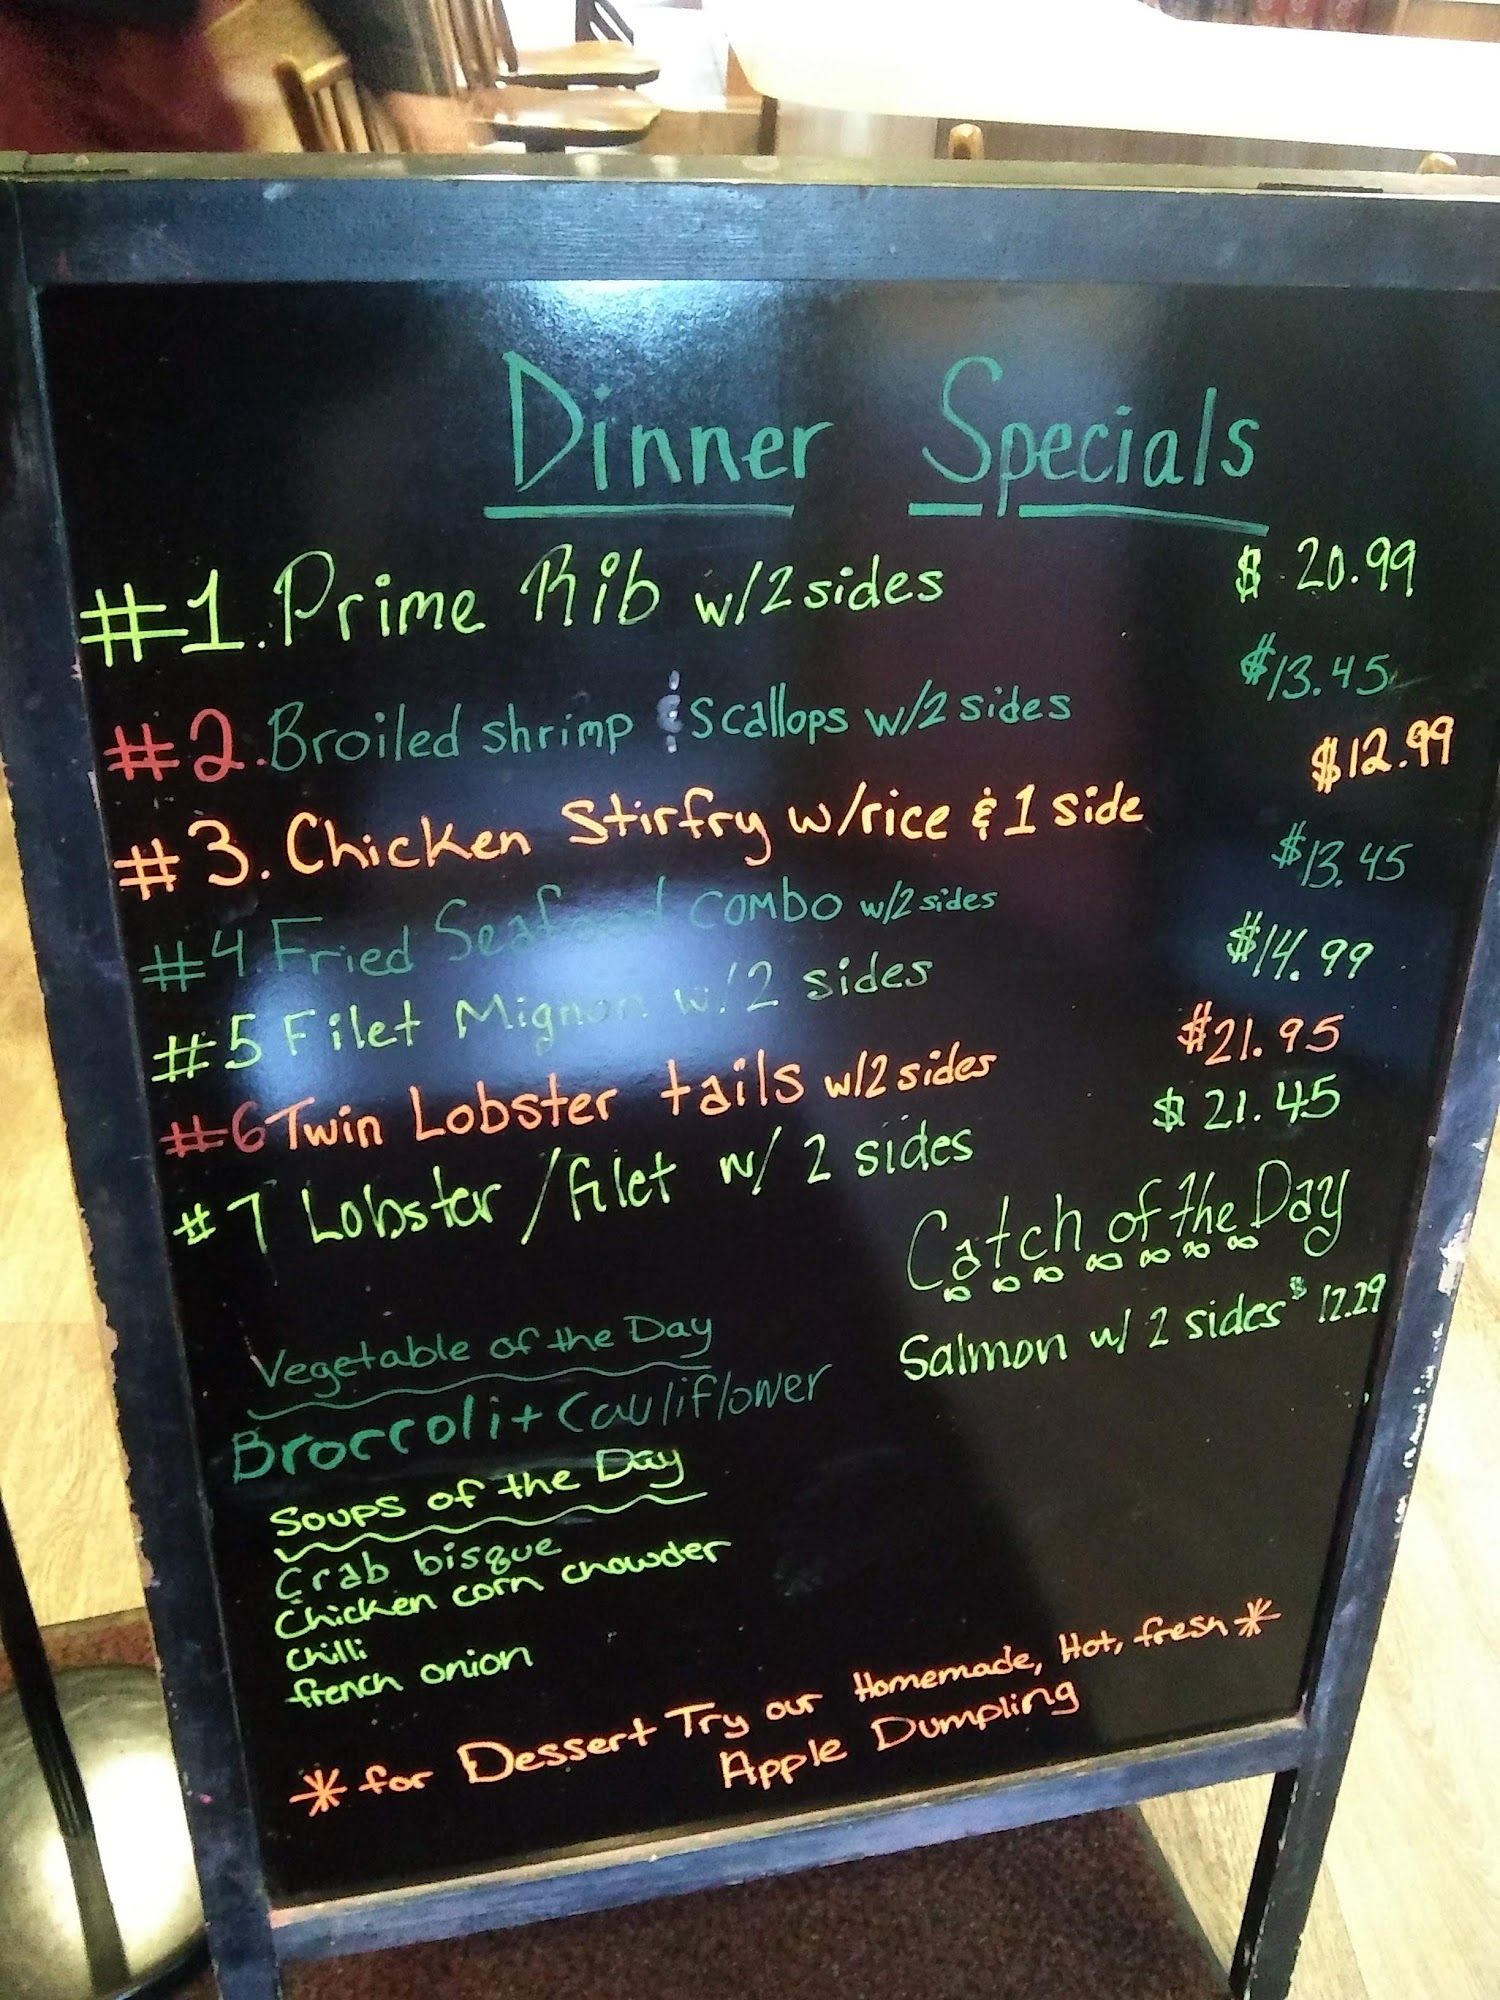 Dinner Specials
#1. Prime Rib w/2 sides $20.99
#2. Broiled shrimp & scallops w/2 sides $13.45
#3. Chicken Stirfry w/rice & 1 side $12.99
#4 Fried Seafood combo w/2 sides $13.45
#5 Filet Mignon w/2 sides $14.99
#6 Twin Lobster tails w/2 sides $21.95
#7 Lobster/filet w/ 2 sides $21.45
Catch of the Day
Salmon w/ 2 sides $12.29
Vegetable of the Day
Broccoli + Cauliflower
Soups of the Day
Crab bisque
Chicken corn chowder
Chilli
french onion
* for Dessert Try our Homemade, Hot, fresh *
Apple Dumpling